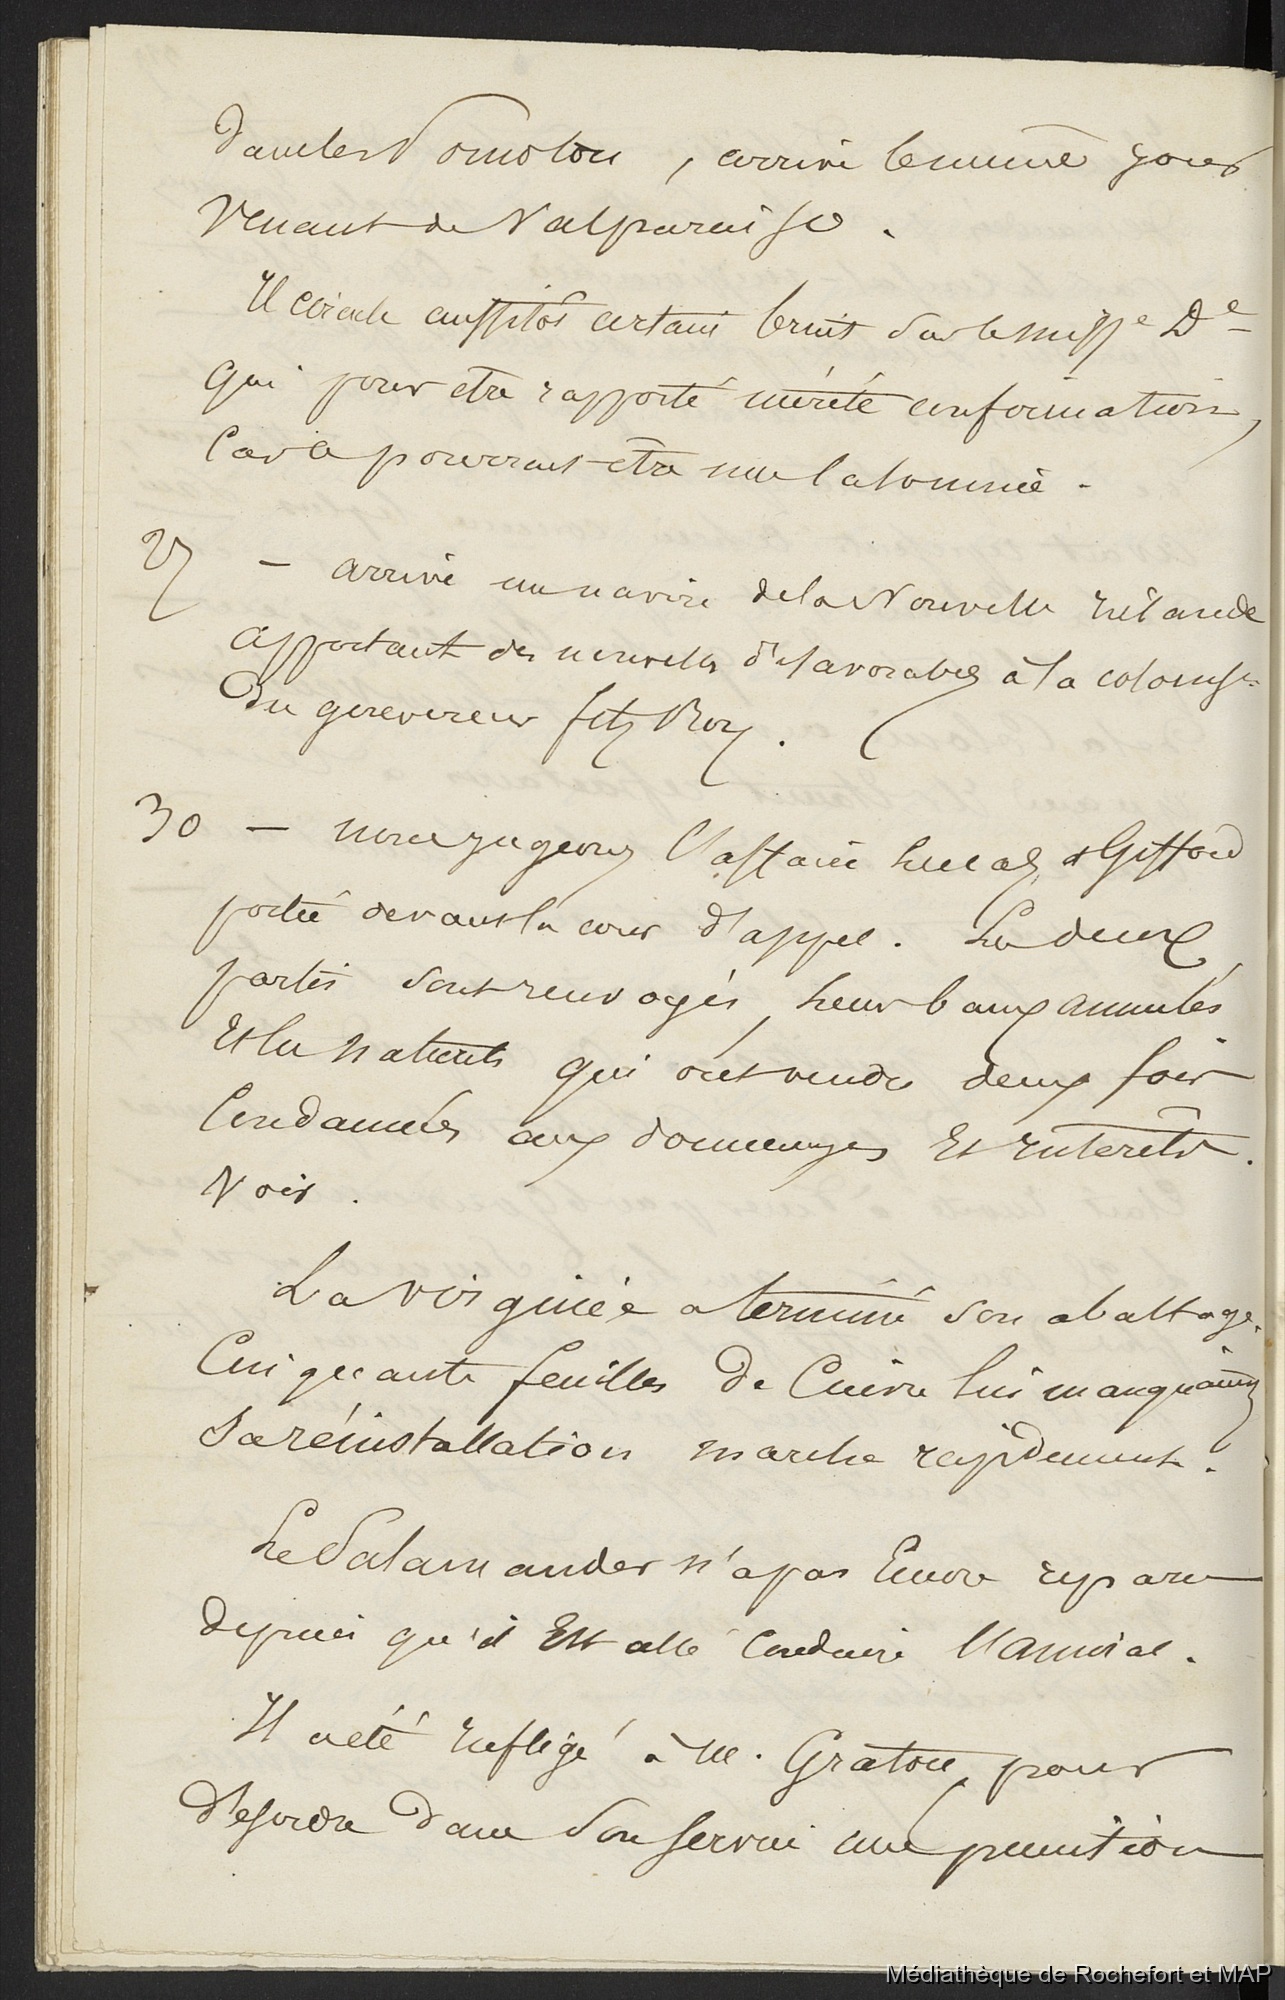 dans les Pomotou, arrivé le même jour
venant de Valparaiso.
Il circule aussitôt certain bruit sur le miss.e D.e
qui pour être rapporté mérité confirmation,
car ce pourrait être une calomnie.
27 – arrivé un navire de la Nouvelle Zélande
apportant des nouvelles défavorables à la colonie
du gouverneur fitz Roy.
30 – nous jugeons l'affaire Lucas & Gifford
portée devant la cour d'appel. Les deux
partis sont renvoyés, leur baux annulés
et les naturels qui ont vendu deux fois
condamnés aux dommages et intérêts.
Voir.
La virginie a terminé son abattage.
Cinquante feuilles de Cuivre lui manquaient
Sa réinstallation marche rapidement.
Le Salamander n'a pas encore reparu
depuis qu'il est allé conduire l'amiral.
Il a été infligé à M. Graton, pour
désordre dans son service une punition
Médiathèque de Rochefort et MAP